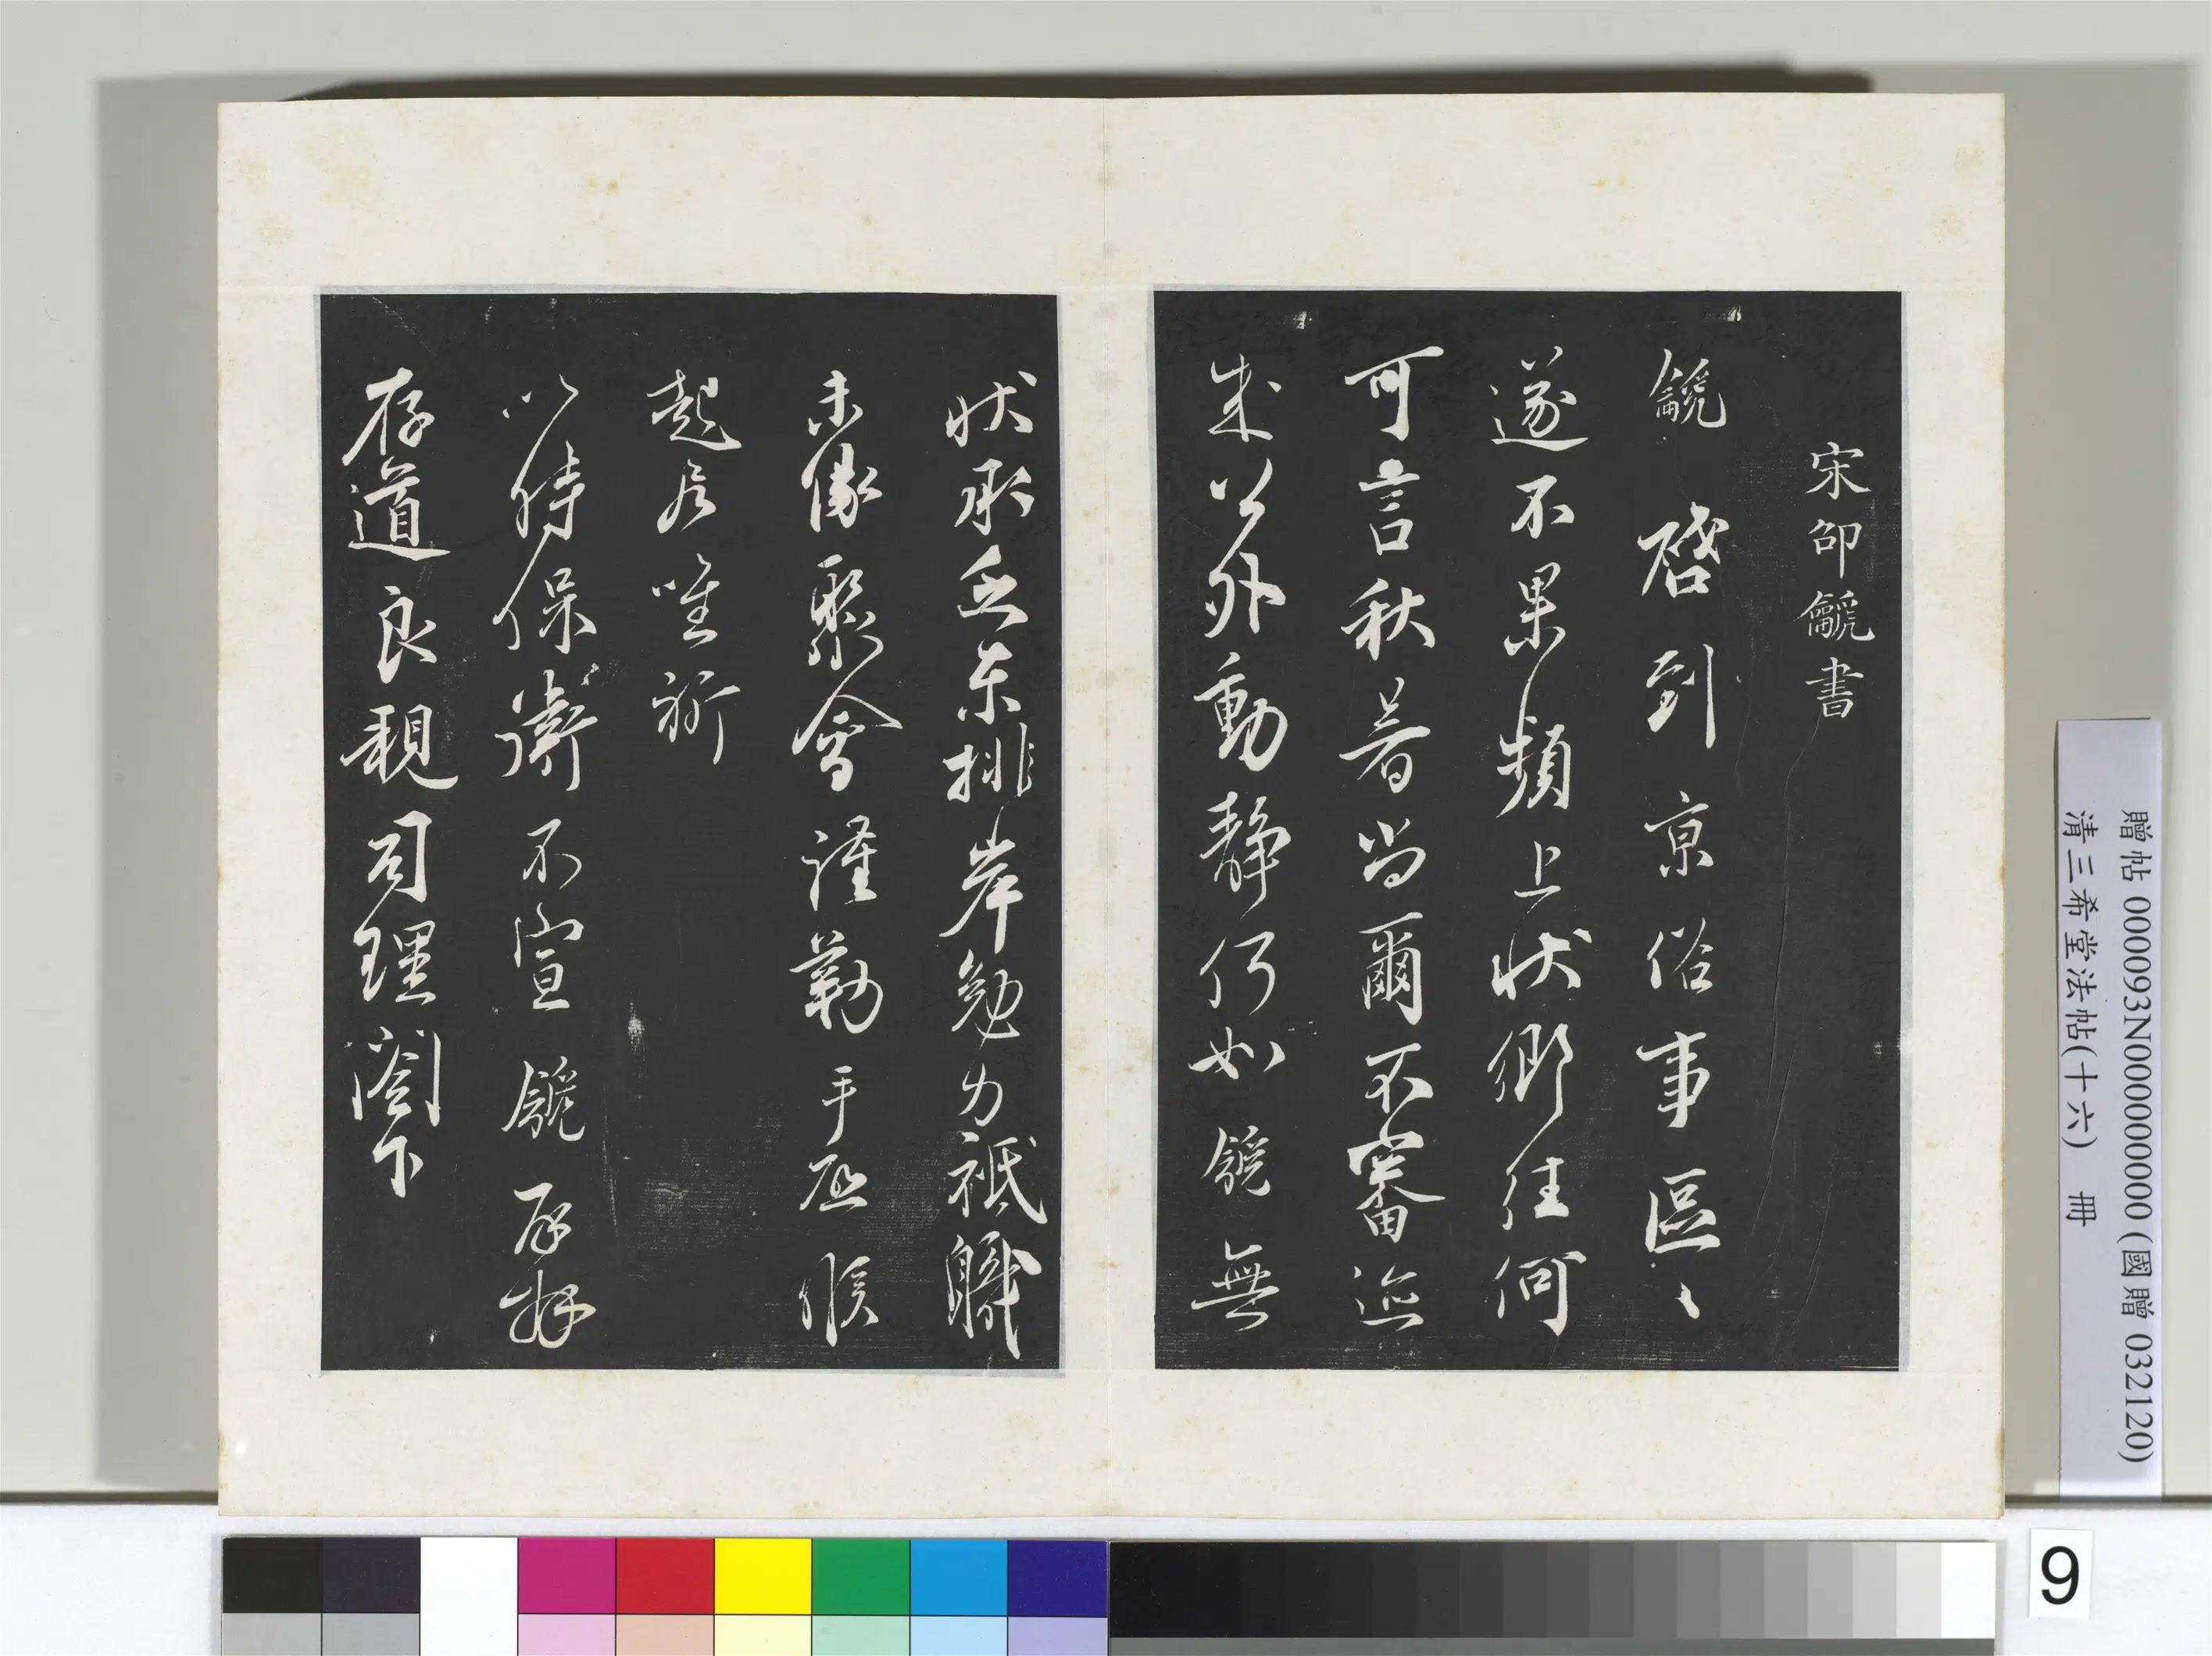 宋邵䶵書
䶵啓到京俗事區〻
遂不果頻上狀鄉往何
可言秋暑尚爾不審迩
來公外動靜何如䶵無
狀承乏東排岸勉力祇職
未緣聚會謹勒手啓候
起居唯祈
以時保衛不宣䶵再拜
存道良親司理閤下
贈帖 000093N000000000 (國贈 032120)
清三希堂法帖(十六) 冊
9